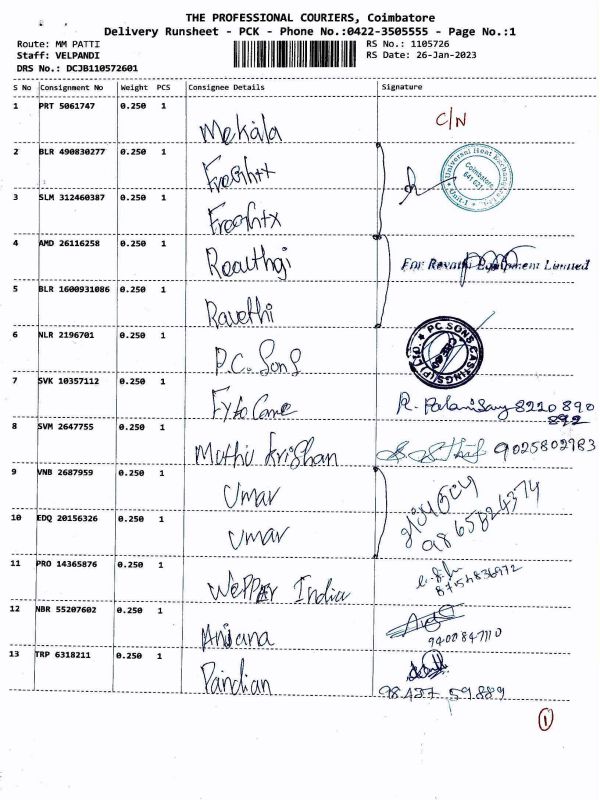 THE PROFESSIONAL COURIERS, Coimbatore
Delivery Runsheet - PCK - Phone No.:0422-3505555 - Page No.:1
Route: MM PATTI RS No.: 1105726
Staff: VELPANDI RS Date: 26-Jan-2023
DRS No.: DCJB110572601
S No Consignment No Weight PCS Consignee Details Signature
1 PRT 5061747 0.250 1 Mekala C/N
2 BLR 490830277 0.250 1
Coimbatore
641 021
3 SLM 312460387 0.250 1
4 AMD 26116258 0.250 1 For Revathi Equipment Limited
5 BLR 1600931086 0.250 1 Ravethi
6 NLR 2196701 0.250 1 P.C. Sons PC SONS CASTINGS (P) LTD.
7 SVK 10357112 0.250 1 8220 890
892
8 SVM 2647755 0.250 1 Muthu Krishan 9025802983
9 VNB 2687959 0.250 1 Umar
9865824374
10 EDQ 20156326 0.250 1 Umar
11 PRO 14365876 0.250 1 India
12 NBR 55207602 0.250 1 Anjana
13 TRP 6318211 0.250 1 Pandian
98437 59889
1